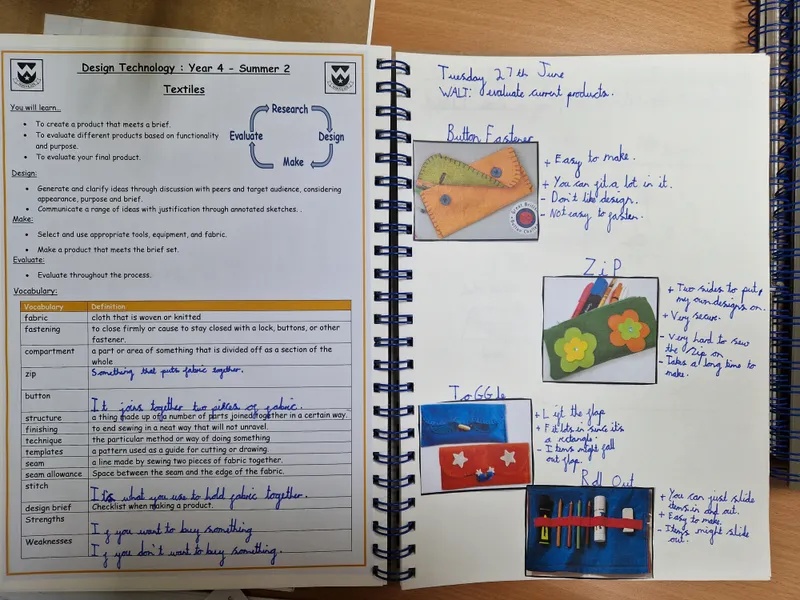 Design Technology : Year 4 - Summer 2
Textiles
You will learn..
• To create a product that meets a brief.
• To evaluate different products based on functionality
and purpose.
• To evaluate your final product.
Research
Design
Make
Evaluate
Design:
• Generate and clarify ideas through discussion with peers and target audience, considering
appearance, purpose and brief.
• Communicate a range of ideas with justification through annotated sketches. .
Make:
• Select and use appropriate tools, equipment, and fabric.
• Make a product that meets the brief set.
Evaluate:
• Evaluate throughout the process.
Vocabulary:
Vocabulary Definition
fabric cloth that is woven or knitted
fastening to close firmly or cause to stay closed with a lock, buttons, or other
fastener.
compartment a part or area of something that is divided off as a section of the
whole
zip Something that puts fabric together.
button It joins together two pieces of fabric.
structure a thing made up of a number of parts joined together in a certain way.
finishing to end sewing in a neat way that will not unravel.
technique the particular method or way of doing something
templates a pattern used as a guide for cutting or drawing.
seam a line made by sewing two pieces of fabric together.
seam allowance Space between the seam and the edge of the fabric.
stitch It's what you use to hold fabric together.
design brief Checklist when making a product.
Strengths If you want to buy something
Weaknesses If you don't want to buy something.
Tuesday 27th June
WALT: evaluate current products.
Button Fastener
+ Easy to make.
+ You can fit a lot in it.
- Don't like design.
- Not easy to fasten.
Zip
+ Two sides to put
my own designs on.
+ Very secure.
- Very hard to sew
the zip on
- Takes a long time to
make.
ToGGle
+ Lift the flap
+ Fit lots in since it's
a rectangle.
- Items might fall
out flap.
Roll Out
+ You can just slide
items in and out.
+ Easy to make.
- Items might slide
out.